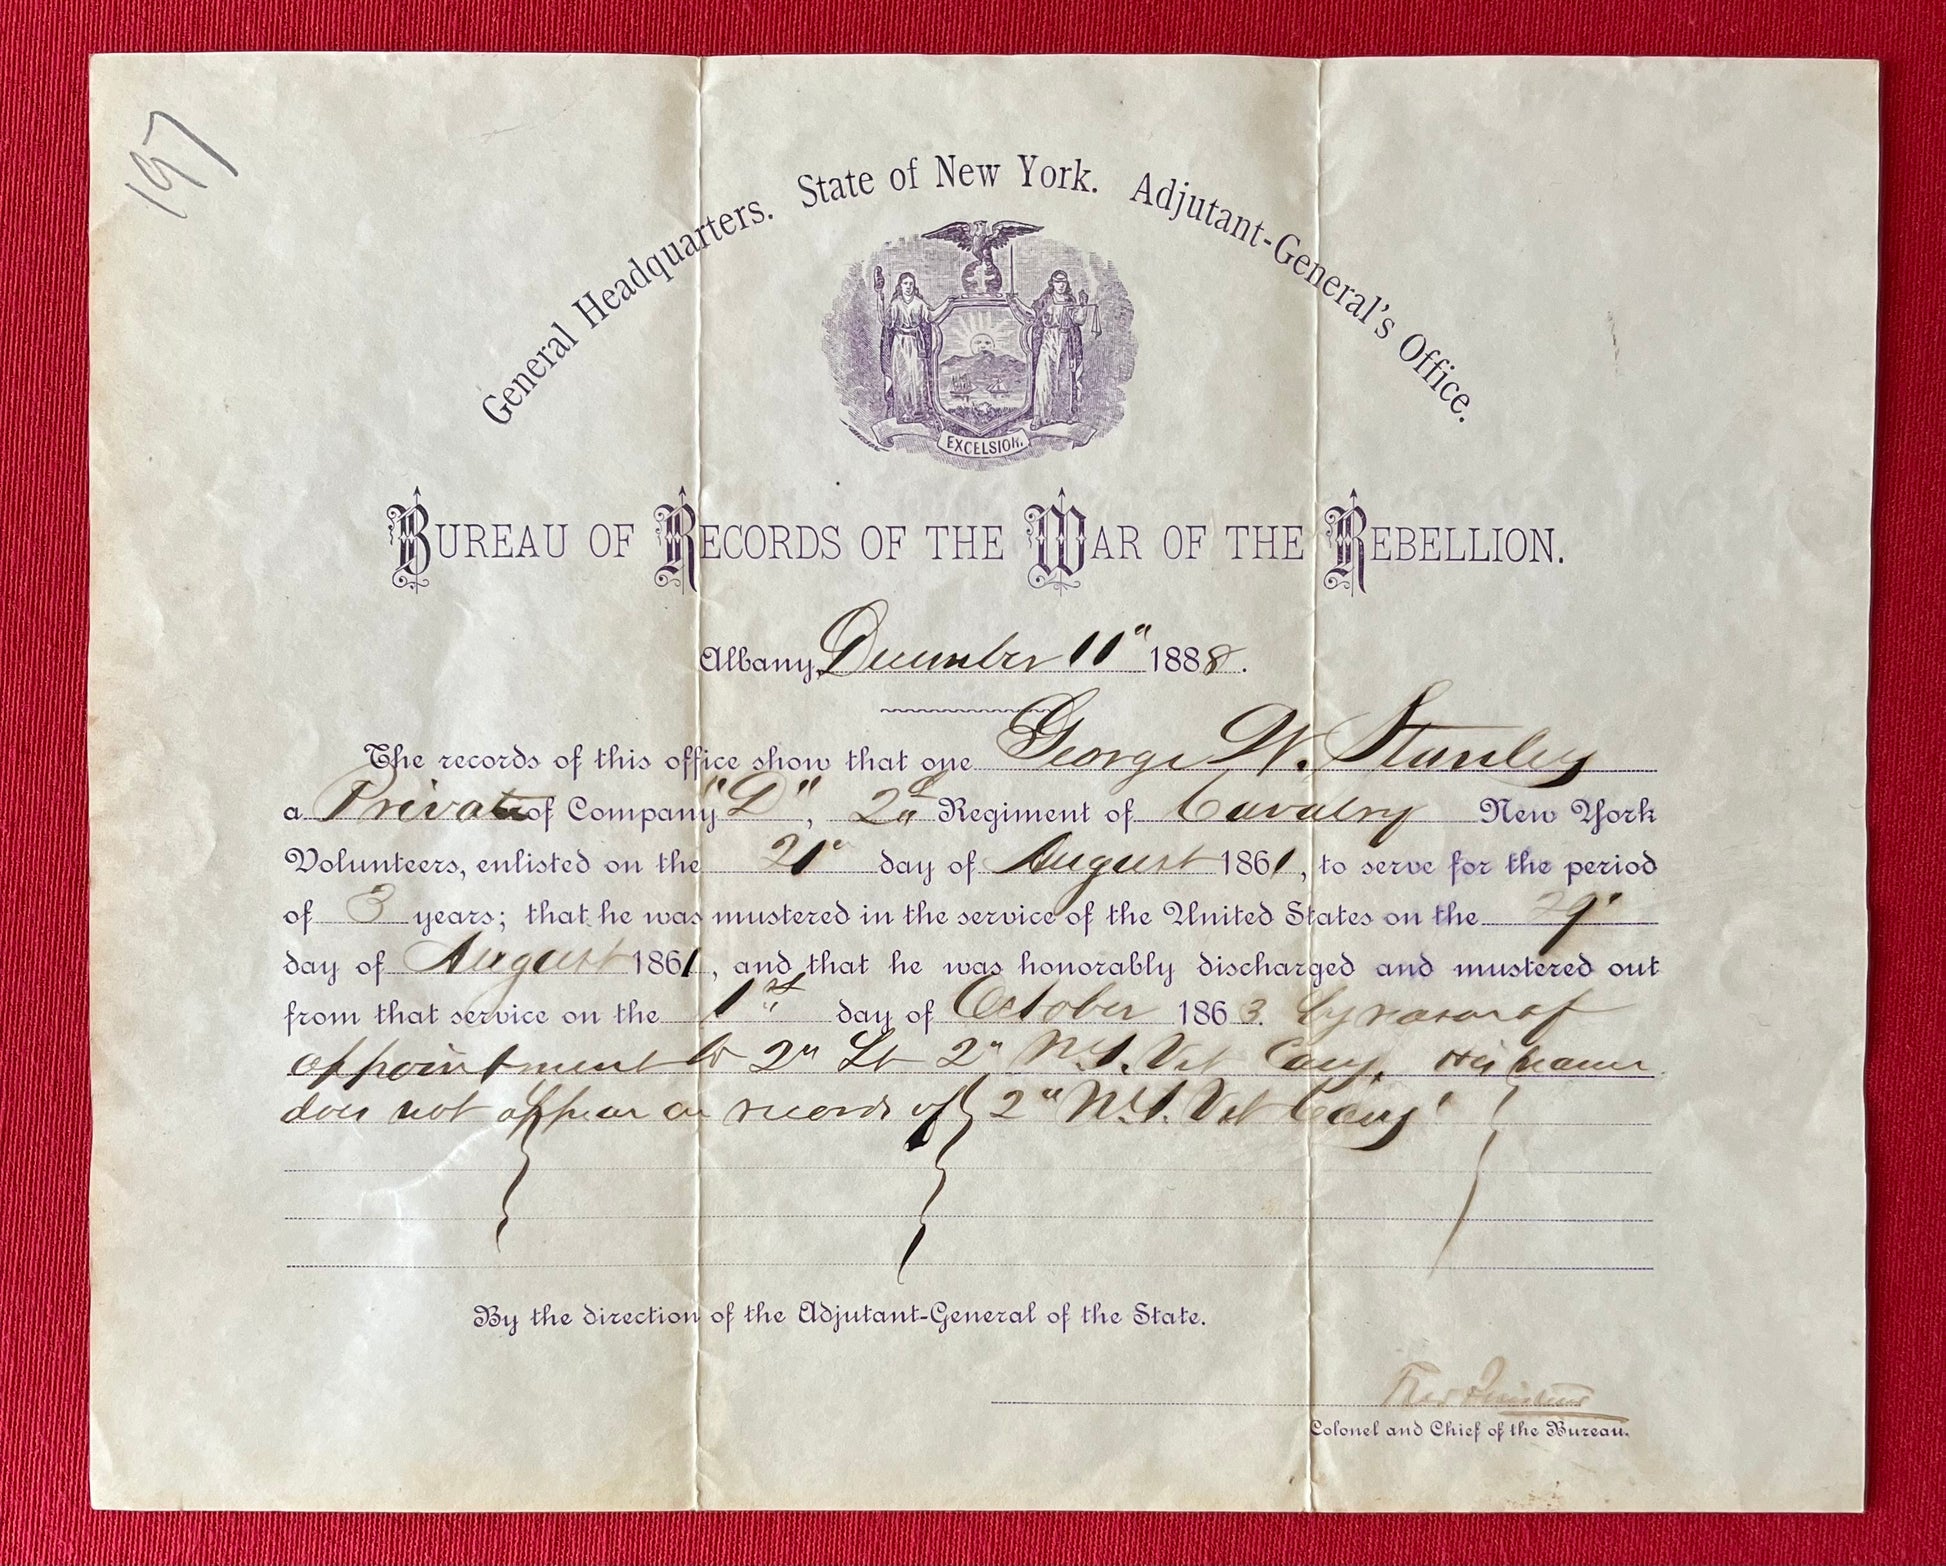 197
General Headquarters. State of New York. Adjutant-General's Office.
EXCELSIOR.
BUREAU OF RECORDS OF THE WAR OF THE REBELLION.
Albany, December 11" 1888.
The records of this office show that one George W. Stanley
a Private of Company "D", 2d Regiment of Cavalry New York
Volunteers, enlisted on the 21" day of August 1861, to serve for the period
of 3 years; that he was mustered in the service of the United States on the 29"
day of August 1861, and that he was honorably discharged and mustered out
from that service on the 1st day of October 1863. by reason of
appointment to 2" Lt 2" N.Y. Vet Cavy. His name
does not appear on records of 2" N.Y. Vet Cavy
By the direction of the Adjutant-General of the State.
Colonel and Chief of the Bureau.